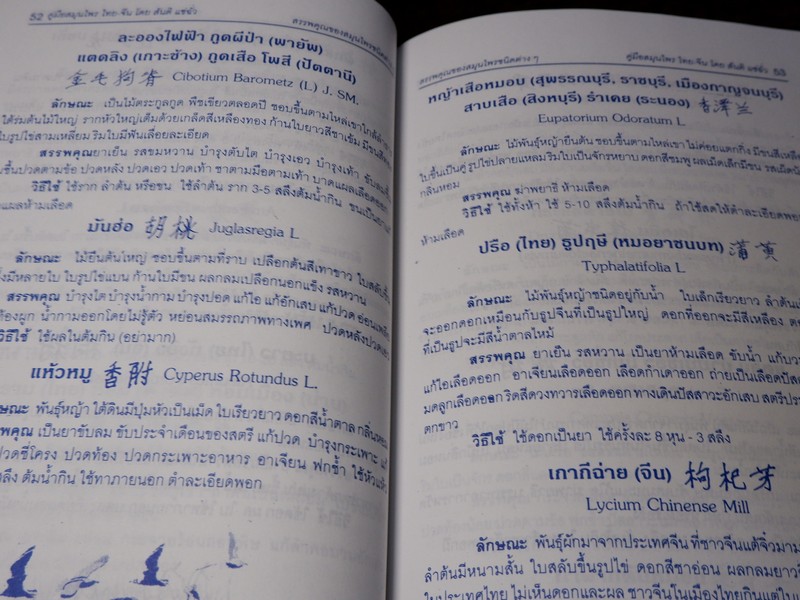 52 คู่มือสมุนไพร ไทย-จีน โดย สันติ แซ่จัว
ละอองไฟฟ้า กูดผีป่า (พายัพ)
แตดลิง (เกาะช้าง) กูดเสือ โพสี (ปัตตานี)
金毛狗脊 Cibotium Barometz (L) J. SM.
ลักษณะ เป็นไม้ตระกูลกูด พืชเขียวตลอดปี ชอบขึ้นตามไหล่เขาใกล้ลำธาร
ใต้ร่มต้นไม้ใหญ่ รากหัวใหญ่เต็มด้วยเกล็ดสีเหลืองทอง ก้านใบยาวสีชาเข้ม มีขนสีทอง
ใบรูปไข่สามเหลี่ยม ริมใบมีฟันเลื่อยละเอียด
สรรพคุณ ยาเย็น รสขมหวาน บำรุงตับไต บำรุงเอว บำรุงเท้า ขับลม
ชื้นปวดตามข้อ ปวดหลัง ปวดเอว ปวดเท้า ชาตามมือตามเท้า บาดแผลเลือดออก
วิธีใช้ ใช้ราก ลำต้น หรือขน ใช้ลำต้น ราก 3-5 สลึงต้มน้ำกิน ขนเป็นยา
แผลห้ามเลือด
มันฮ่อ 胡桃 Juglasregia L
ลักษณะ ไม้ยืนต้นใหญ่ ชอบขึ้นตามที่ราบ เปลือกต้นสีเทาขาว ใบสลับ
มีหลายใบ ใบรูปไข่แบน ก้านใบมีขน ผลกลมเปลือกนอกแข็ง รสหวาน
สรรพคุณ บำรุงไต บำรุงน้ำกาม บำรุงปอด แก้ไอ แก้อักเสบ แก้ปวด อ่อนเพลีย
ท้องผูก น้ำกามออกโดยไม่รู้ตัว หย่อนสมรรถภาพทางเพศ ปวดหลังปวดเอว
วิธีใช้ ใช้ผลในต้มกิน (อย่ามาก)
แห้วหมู 香附 Cyperus Rotundus L.
ลักษณะ พันธุ์หญ้า ใต้ดินมีปุ่มหัวเป็นเม็ด ใบเรียวยาว ดอกสีน้ำตาล
เป็นยาขับลม ขับประจำเดือนของสตรี แก้ปวด บำรุงกระเพาะ
ปวดซี่โครง ปวดท้อง ปวดกระเพาะอาหาร อาเจียน ฟกช้ำ ใช้หัวแห้ง
สลึง ต้มน้ำกิน ใช้ทาภายนอก ตำละเอียดพอก
สรรพคุณของสมุนไพรชนิดต่างๆ คู่มือสมุนไพร ไทย-จีน โดย สันติ แซ่จัว 53
หญ้าเสือหมอบ (สุพรรณบุรี, ราชบุรี, เมืองกาญจนบุรี)
สาบเสือ (สิงหบุรี) รำเคย (ระนอง) 香泽兰
Eupatorium Odoratum L
ลักษณะ ไม้พันธุ์หญ้ายืนต้น ชอบขึ้นตามไหล่เขา ไม่ค่อยแตกกิ่ง มีขนสีเหลือง
ใบขึ้นเป็นคู่ รูปไข่ปลายแหลมริมใบเป็นจักรหยาบ ดอกสีชมพู ผลเม็ดเล็กมีขน รสเผ็ด
กลิ่นหอม
สรรพคุณ ฆ่าพยาธิ ห้ามเลือด
วิธีใช้ ใช้ทั้งห้า ใช้ 5-10 สลึงต้มน้ำกิน ถ้าใช้สดให้ตำละเอียดพอก
ห้ามเลือด
ปรือ (ไทย) ธูปฤษี (หมอยาชนบท) 蒲黄
Typhalatifolia L
ลักษณะ ไม้พันธุ์หญ้าชนิดอยู่กับน้ำ ใบเล็กเรียวยาว ลำต้น
จะออกดอกเหมือนกับธูปจีนที่เป็นรูปใหญ่ ดอกที่ออกจะมีสีเหลือง
ที่เป็นรูปจะมีสีน้ำตาลไหม้
สรรพคุณ ยาเย็น รสหวาน เป็นยาห้ามเลือด ขับน้ำ แก้บวม
แก้ไอเลือดออก อาเจียนเลือดออก เลือดกำเดาออก ถ่ายเป็นเลือด
มดลูกเลือดออก ริดสีดวงทวารเลือดออก ทางเดินปัสสาวะอักเสบ สตรี
ตกขาว
วิธีใช้ ใช้ดอกเป็นยา ใช้ครั้งละ 8 หุน - 3 สลึง
เกากีฉ่าย (จีน) 枸杞芽
Lycium Chinense Mill
ลักษณะ พันธุ์ผักมาจากประเทศจีน ที่ชาวจีนแต้จิ๋ว
ลำต้นมีหนามสั้น ใบสลับขึ้นรูปไข่ ดอกสีชาอ่อน ผลกลมยาว
ในประเทศไทย ไม่เห็นดอกและผล ชาวจีนในเมืองไทยกินแต่ใบ